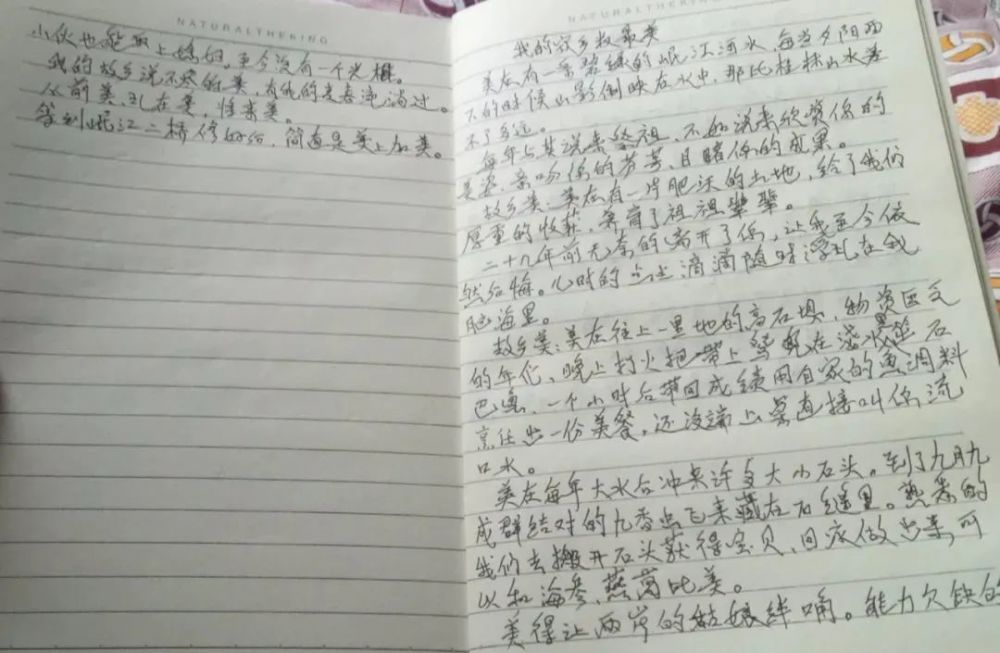 NATURALTHERING
小伙也能娶上媳妇。至今没有一个光棍。
我的故乡说不尽的美,有他的文章流淌过。
从前美,现在美,将来美。
等到岷江二桥修好后,简直是美上加美。
NATURALTHERING
我的家乡故事美
美在有一条碧绿的岷江河水,每当夕阳西
下的时候山影倒映在水中,那比桂林山水差
不了多远。
每年与其说来祭祖,不如说来欣赏你的
美姿、亲吻你的芳芳、目睹你的成果。
故乡美:美在有一片肥沃的土地,给了我们
厚重的收获,养育了祖祖辈辈。
二十九年前无奈的离开了你,让我至今依
然后悔。儿时的点点滴滴随时浮现在我
脑海里。
故乡美:美在往上一里地的高石坝,物资匮乏
的年代、晚上打火把带上 在浅水 石
巴鱼、一个小时后带回成绩用自家的鱼调料
烹饪出一份美餐,还没端上桌直接叫你流
口水。
美在每年大水后冲来许多大小石头。到了九月九
成群结对的九香虫飞来藏在石缝里。熟悉的
我们去搬开石头获得宝贝、回家做出来,可
以和海参、燕窝比美。
美得让两岸的姑娘绊嘴。能力欠缺的